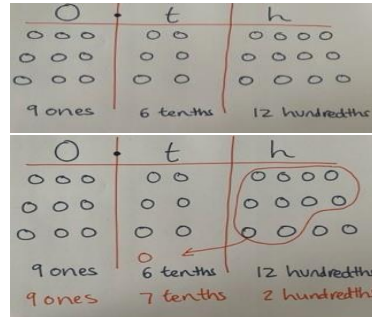 O . t h
9 ones 6 tenths 12 hundredths
O . t h
9 ones 6 tenths 12 hundredth
9 ones 7 tenths 2 hundredth